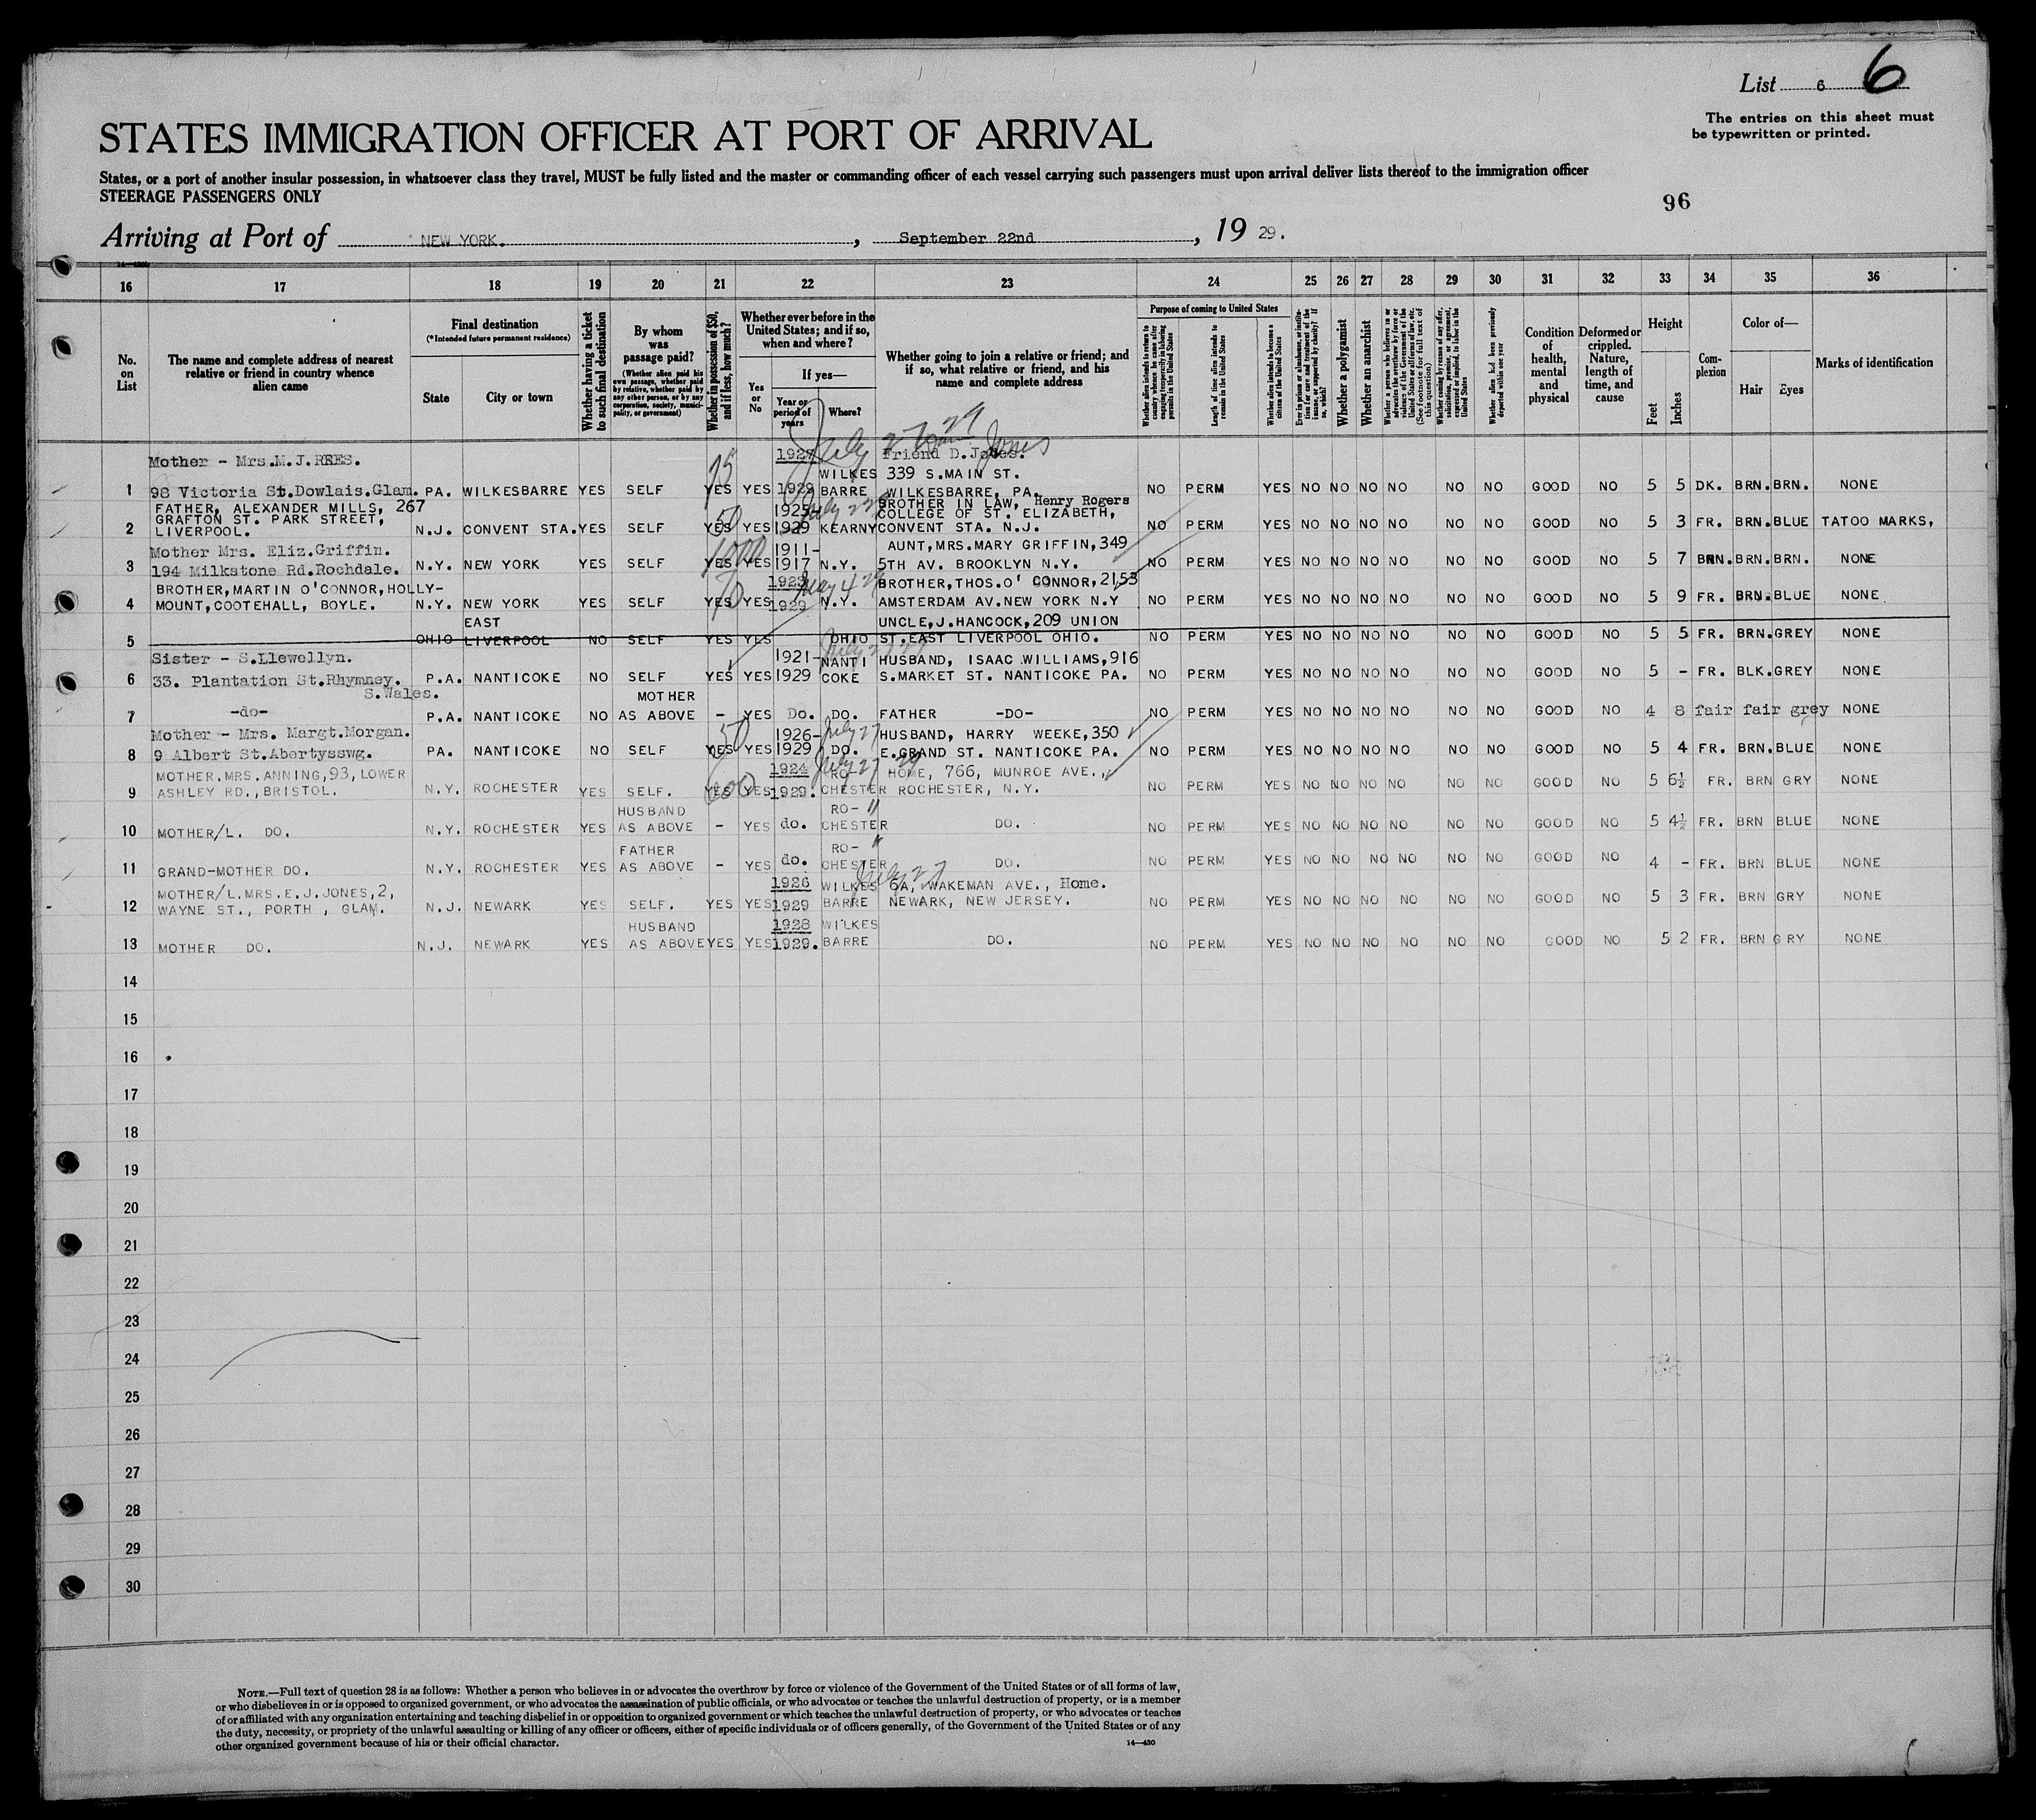 List 6 6
The entries on this sheet must
be typewritten or printed.
STATES IMMIGRATION OFFICER AT PORT OF ARRIVAL
States, or a port of another insular possession, in whatsoever class they travel, MUST be fully listed and the master or commanding officer of each vessel carrying such passengers must upon arrival deliver lists thereof to the immigration officer
STEERAGE PASSENGERS ONLY
96
Arriving at Port of NEW YORK. , September 22nd , 19 29.
16 17 18 19 20 21 22 23 24 25 26 27 28 29 30 31 32 33 34 35 36
No. on List
The name and complete address of nearest relative or friend in country whence alien came
Final destination
(*Intended future permanent residence)
State
City or town
Whether having a ticket to such final destination
By whom was passage paid?
(Whether alien paid his own passage, whether paid by relative, whether paid by any other person, or by any corporation, society, municipality, or government)
Whether in possession of $50, and if less, how much?
Whether ever before in the United States; and if so, when and where?
Yes or No
If yes—
Year or period of years
Where?
Whether going to join a relative or friend; and if so, what relative or friend, and his name and complete address
Purpose of coming to United States
Length of time alien intends to remain in the United States
Whether alien intends to become a citizen of the United States
Whether a polygamist
Whether an anarchist
Whether alien had been previously deported within one year
Condition of health, mental and physical
Deformed or crippled. Nature, length of time, and cause
Height
Feet
Inches
Complexion
Color of—
Hair
Eyes
Marks of identification
July 27 29
Jones
Mother - Mrs.M.J.REES. 1927 Friend D.Jones.
75 WILKES 339 S.MAIN ST.
1 98 Victoria St.Dowlais.Glam. PA. WILKESBARRE YES SELF YES YES 1929 BARRE WILKESBARRE, PA. NO PERM YES NO NO NO NO NO NO GOOD NO 5 5 DK. BRN. BRN. NONE
FATHER, ALEXANDER MILLS, 267 1925- BROTHER IN LAW, Henry Rogers
GRAFTON ST. PARK STREET, 50 COLLEGE OF ST. ELIZABETH,
2 LIVERPOOL. N.J. CONVENT STA. YES SELF YES YES 1929 KEARNY CONVENT STA. N.J. NO PERM YES NO NO NO NO NO NO GOOD NO 5 3 FR. BRN. BLUE TATOO MARKS,
Mother Mrs. Eliz.Griffin. 1000 1911- AUNT,MRS.MARY GRIFFIN,349
3 194 Milkstone Rd.Rochdale. N.Y. NEW YORK YES SELF YES YES 1917 N.Y. 5TH AV. BROOKLYN N.Y. NO PERM YES NO NO NO NO NO NO GOOD NO 5 7 BRN. BRN. BRN. NONE
BROTHER,MARTIN O'CONNOR,HOLLY- 1923 May 4 29 BROTHER,THOS.O' CONNOR,2153
4 MOUNT,COOTEHALL, BOYLE. N.Y. NEW YORK YES SELF YES YES 1929 N.Y. AMSTERDAM AV.NEW YORK N.Y NO PERM YES NO NO NO NO NO NO GOOD NO 5 9 FR. BRN. BLUE NONE
EAST UNCLE,J.HANCOCK,209 UNION
5 OHIO LIVERPOOL NO SELF YES YES OHIO ST.EAST LIVERPOOL OHIO. NO PERM YES NO NO NO NO NO NO GOOD NO 5 5 FR. BRN. GREY NONE
Sister - S.Llewellyn. 1921- NANTI HUSBAND, ISAAC WILLIAMS,916
6 33. Plantation St.Rhymney. P.A. NANTICOKE NO SELF YES YES 1929 COKE S.MARKET ST. NANTICOKE PA. NO PERM YES NO NO NO NO NO NO GOOD NO 5 - FR. BLK. GREY NONE
S.Wales. MOTHER
7 -do- P.A. NANTICOKE NO AS ABOVE - YES DO. DO. FATHER -DO- NO PERM YES NO NO NO NO NO NO GOOD NO 4 8 fair fair grey NONE
Mother - Mrs. Margt.Morgan. 50 1926- July 27 HUSBAND, HARRY WEEKE,350
8 9 Albert St.Abertysswg. PA. NANTICOKE NO SELF YES YES 1929 DO. E.GRAND ST. NANTICOKE PA. NO PERM YES NO NO NO NO NO NO GOOD NO 5 4 FR. BRN. BLUE NONE
MOTHER.MRS.ANNING,93,LOWER 1924 July 27 29 RO- HOME, 766, MUNROE AVE.,
9 ASHLEY RD.,BRISTOL. N.Y. ROCHESTER YES SELF. YES YES 1929. CHESTER ROCHESTER, N.Y. NO PERM YES NO NO NO NO NO NO GOOD NO 5 6½ FR. BRN GRY NONE
HUSBAND RO- "
10 MOTHER/L. DO. N.Y. ROCHESTER YES AS ABOVE - YES do. CHESTER DO. NO PERM YES NO NO NO NO NO NO GOOD NO 5 4½ FR. BRN BLUE NONE
FATHER RO- "
11 GRAND-MOTHER DO. N.Y. ROCHESTER YES AS ABOVE - YES do. CHESTER DO. NO PERM YES NO NO NO NO NO NO GOOD NO 4 - FR. BRN BLUE NONE
MOTHER/L.MRS.E.J.JONES,2, 1926 WILKES July 27 6A, WAKEMAN AVE., Home.
12 WAYNE ST., PORTH , GLAM. N.J. NEWARK YES SELF. YES YES 1929 BARRE NEWARK, NEW JERSEY. NO PERM YES NO NO NO NO NO NO GOOD NO 5 3 FR. BRN GRY NONE
HUSBAND 1928 WILKES
13 MOTHER DO. N.J. NEWARK YES AS ABOVE YES YES 1929. BARRE DO. NO PERM YES NO NO NO NO NO NO GOOD NO 5 2 FR. BRN GRY NONE
14
15
16
17
18
19
20
21
22
23
24
25
26
27
28
29
30
NOTE.—Full text of question 28 is as follows: Whether a person who believes in or advocates the overthrow by force or violence of the Government of the United States or of all forms of law,
or who disbelieves in or is opposed to organized government, or who advocates the assassination of public officials, or who advocates or teaches the unlawful destruction of property, or is a member
of or affiliated with any organization entertaining and teaching disbelief in or opposition to organized government or which teaches the unlawful destruction of property, or who advocates or teaches
the duty, necessity, or propriety of the unlawful assaulting or killing of any officer or officers, either of specific individuals or of officers generally, of the Government of the United States or of any
other organized government because of his or their official character.
14—430